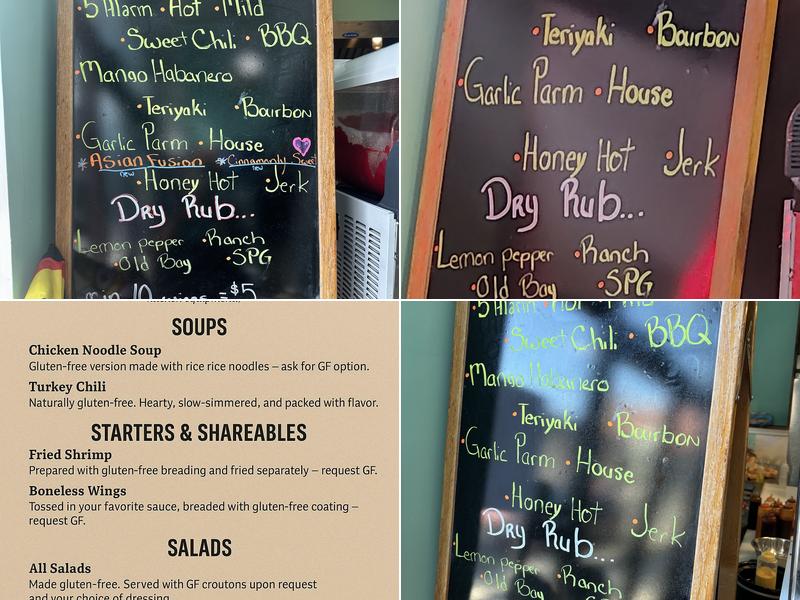 5 Alarm • Hot • Mild
• Sweet Chili • BBQ
• Mango Habanero
• Teriyaki • Bourbon
• Garlic Parm • House
* Asian Fusion * Cinnamonly Sweet
new new
• Honey Hot • Jerk
Dry Rub...
• Lemon pepper • Ranch
• Old Bay • SPG
= $5
• Teriyaki • Bourbon
• Garlic Parm • House
• Honey Hot • Jerk
Dry Rub...
• Lemon pepper • Ranch
• Old Bay • SPG
SOUPS
Chicken Noodle Soup
Gluten-free version made with rice rice noodles – ask for GF option.
Turkey Chili
Naturally gluten-free. Hearty, slow-simmered, and packed with flavor.
STARTERS & SHAREABLES
Fried Shrimp
Prepared with gluten-free breading and fried separately – request GF.
Boneless Wings
Tossed in your favorite sauce, breaded with gluten-free coating –
request GF.
SALADS
All Salads
Made gluten-free. Served with GF croutons upon request
and your choice of dressing.
5 Alarm • Hot • Mild
• Sweet Chili • BBQ
• Mango Habanero
• Teriyaki • Bourbon
• Garlic Parm • House
• Honey Hot • Jerk
Dry Rub...
• Lemon pepper • Ranch
• Old Bay